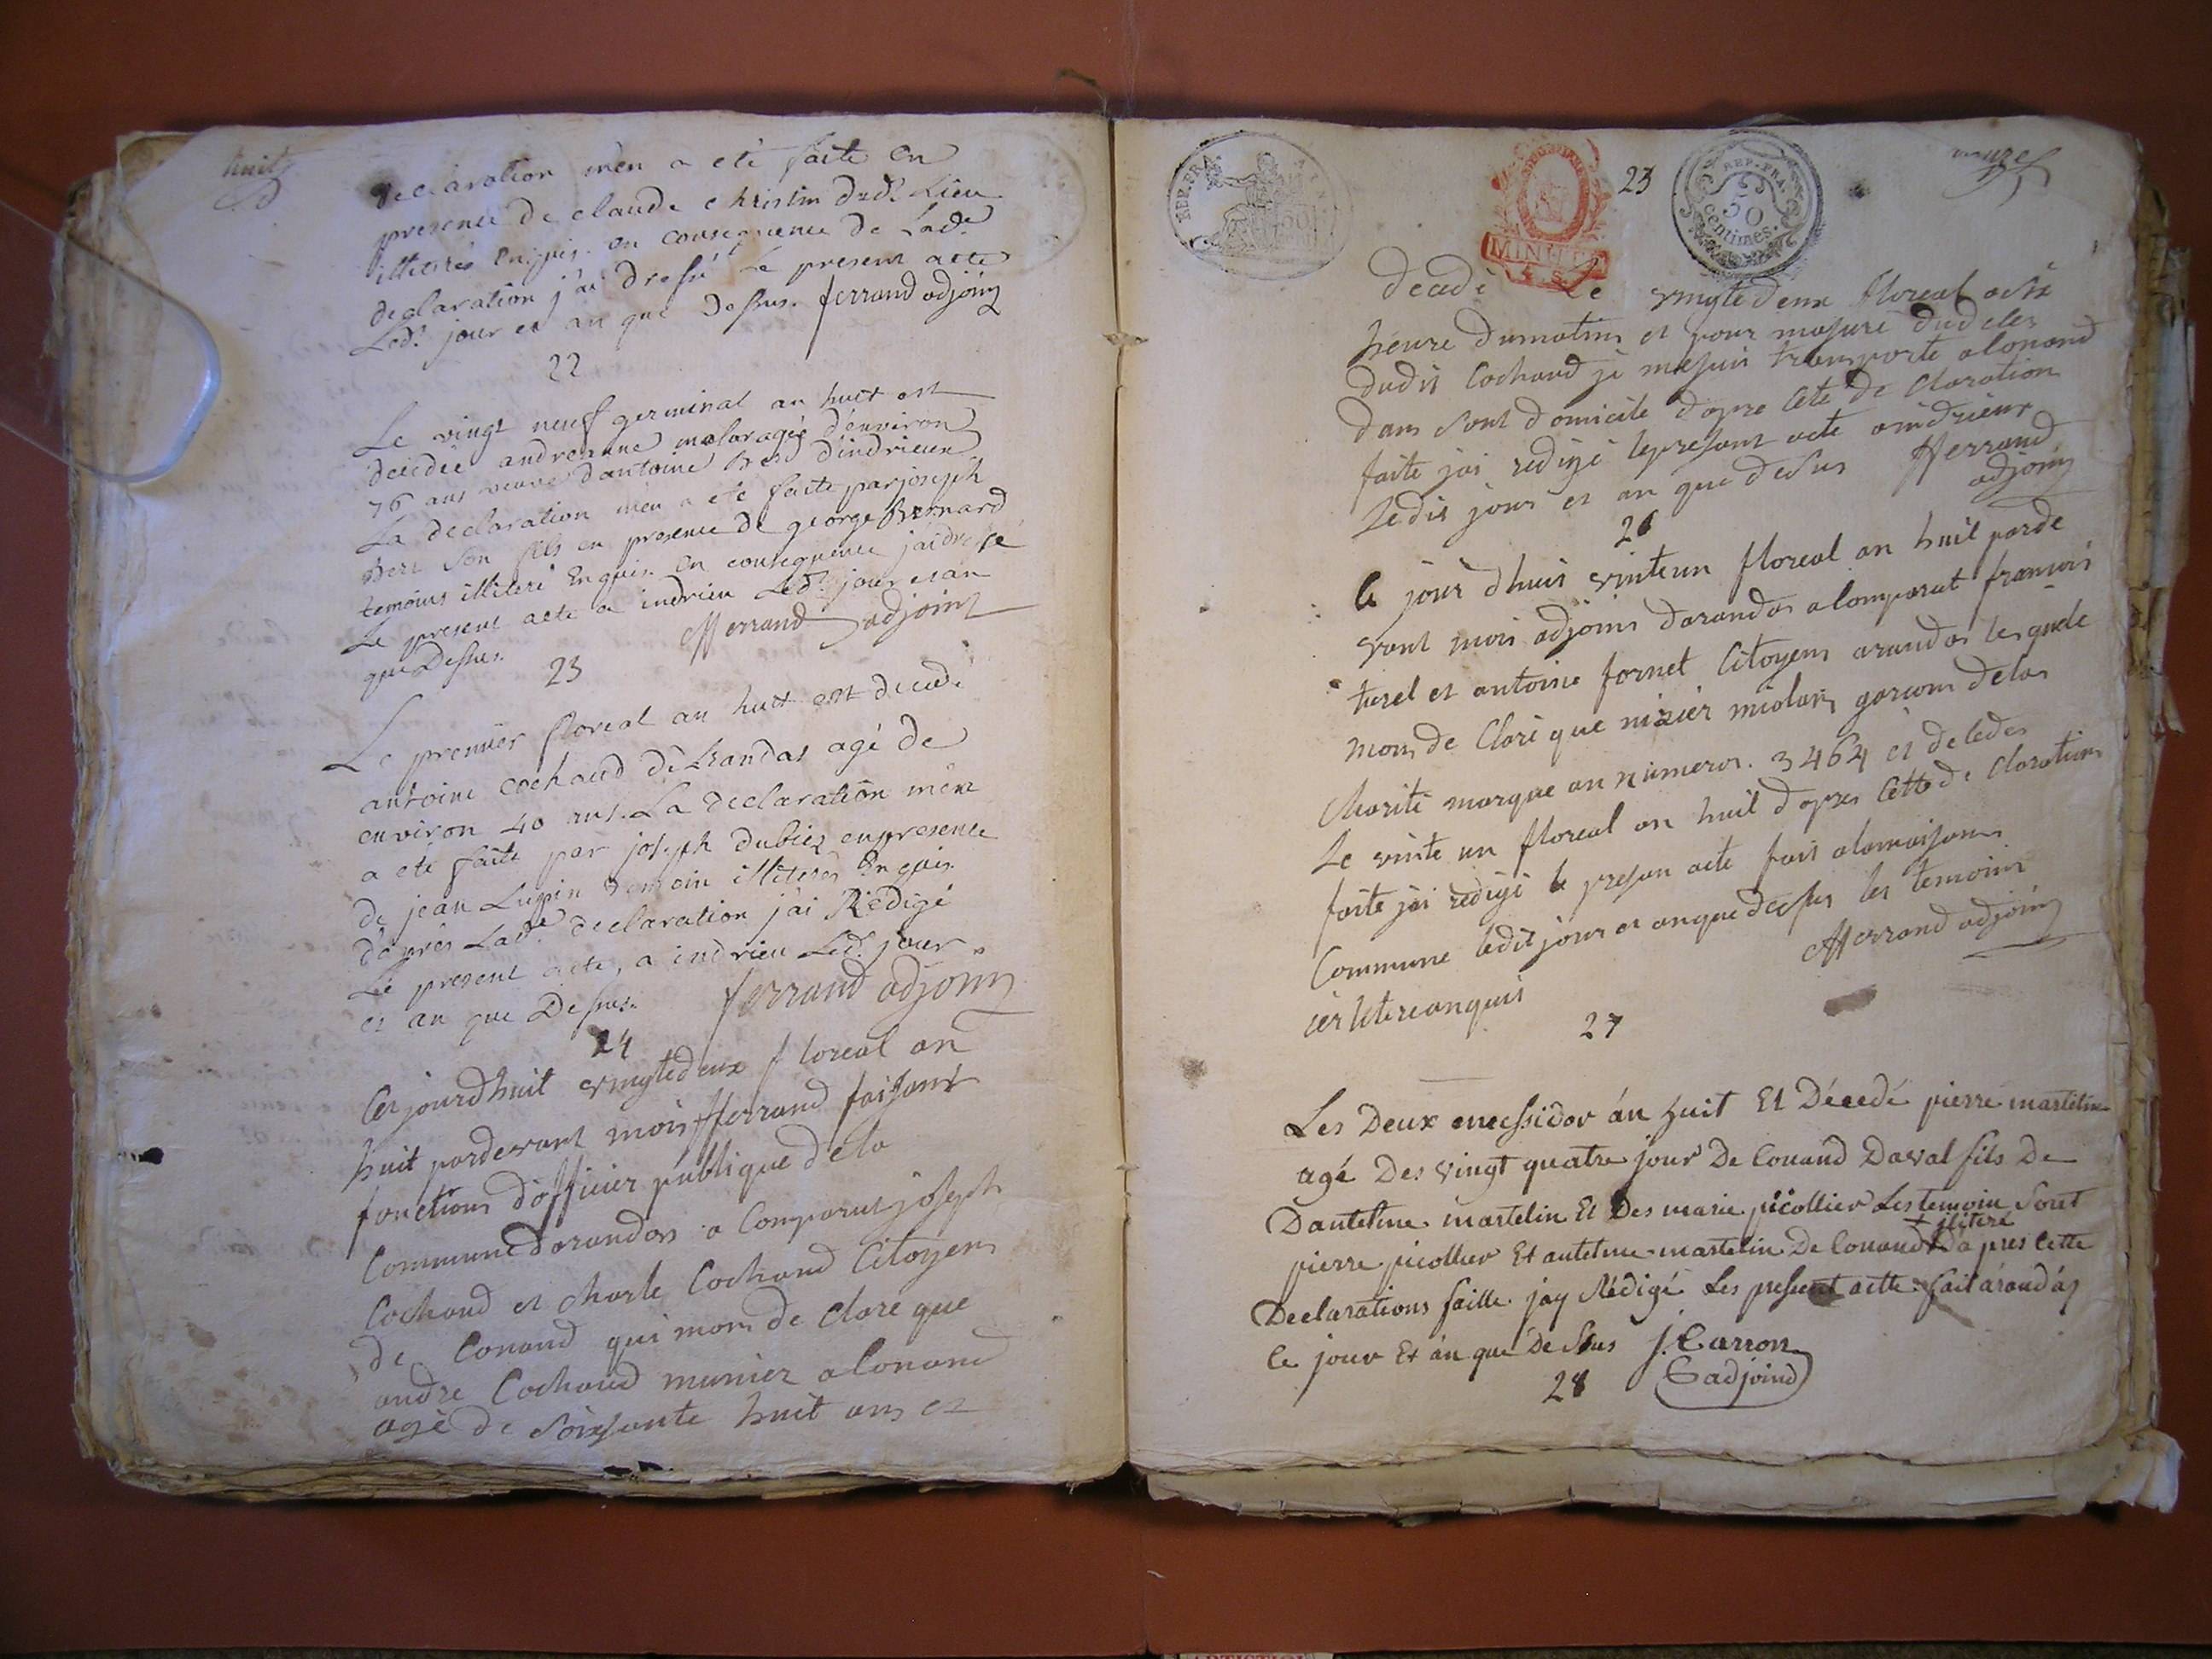 huit
declaration m'en a eté faite en
presence de claude christin dud. Lieu
illiteres Enquis. en consequence de Lad.e
declaration j'ai dressé Le present acte
Led. jour et an que dessus. ferrand adjoint
22
Le vingt neuf germinal an huit est
decedée andreanne agée d'environ
76 ans veuve d'antoine d'indrieux
La declaration m'en a eté faite par joseph
son fils en presence de george Bernard
temoins illiteré Enquis. En consequence j'ai dressé
Le present acte a indrieu Led. jour et an
que Dessus. fferrand adjoint
23
Le premier floreal an huit est decedé
antoine cochaud d'Arandas agé de
environ 40 ans. La declaration m'en
a eté faite par joseph dubiez en presence
de jean Lupin temoin illiteres Enquis.
d'après Lad.e declaration j'ai Rédigé
Le present acte, a indrieu Led. jour
et an que Dessus. ferrand adjoint
24
Ces jourdhuit vingtedeux floreal an
huit pardevant mois fferrand faisant
fonctions d'officier publique dela
Commune darandas a Comparut joseph
Cochaud et charle Cochaud Citoyens
de Conand qui mons de clare que
andre Cochaud munier a Conand
agé de soixsante huit ans et
REP. FRA.
MINUTE
4 S
25
REP. FRA.
50
centimes.
décedé Le vingtedeux floreal a six
heure dumatins et pour m'asuré dudeces
dudis Cochaud je mesuis transporte a Conand
dans sont domicile d'apre Cete de Claration
faite jai redigé lepresant acte a indrieux
Ledis jours et an que desus fferrand
adjoint
26
le jour dhuis vinteun floreal an huil parde
vant mois adjoint darandas a Comparut francois
turel et antoine fornet Citoyens arandas les quele
mons de Claré que nizier miolan garcons delas
Charité marque au numeros. 3464 et deledes
Le vinte un floreal an huil d'apres Cette de Claration
faite jai redigé le presan acte fait alamaisons
Commune ledit jour et anquedessus les temoins
fferrand adjoint
27
Les Deux messidor án huit Et Décedé pierre martelin
agé Des vingt quatre jour De Conand Daval fils De
Dantelme martelin Et Des marie picollier Les temoin Sont
+ iliteré
pierre picollier Et antelme martelin De Conand + Da pres Cette
Declarations faitte jay Rédigé Les present actte fait árandás
le jour Et án que De Sus J. Carron
adjoind
28